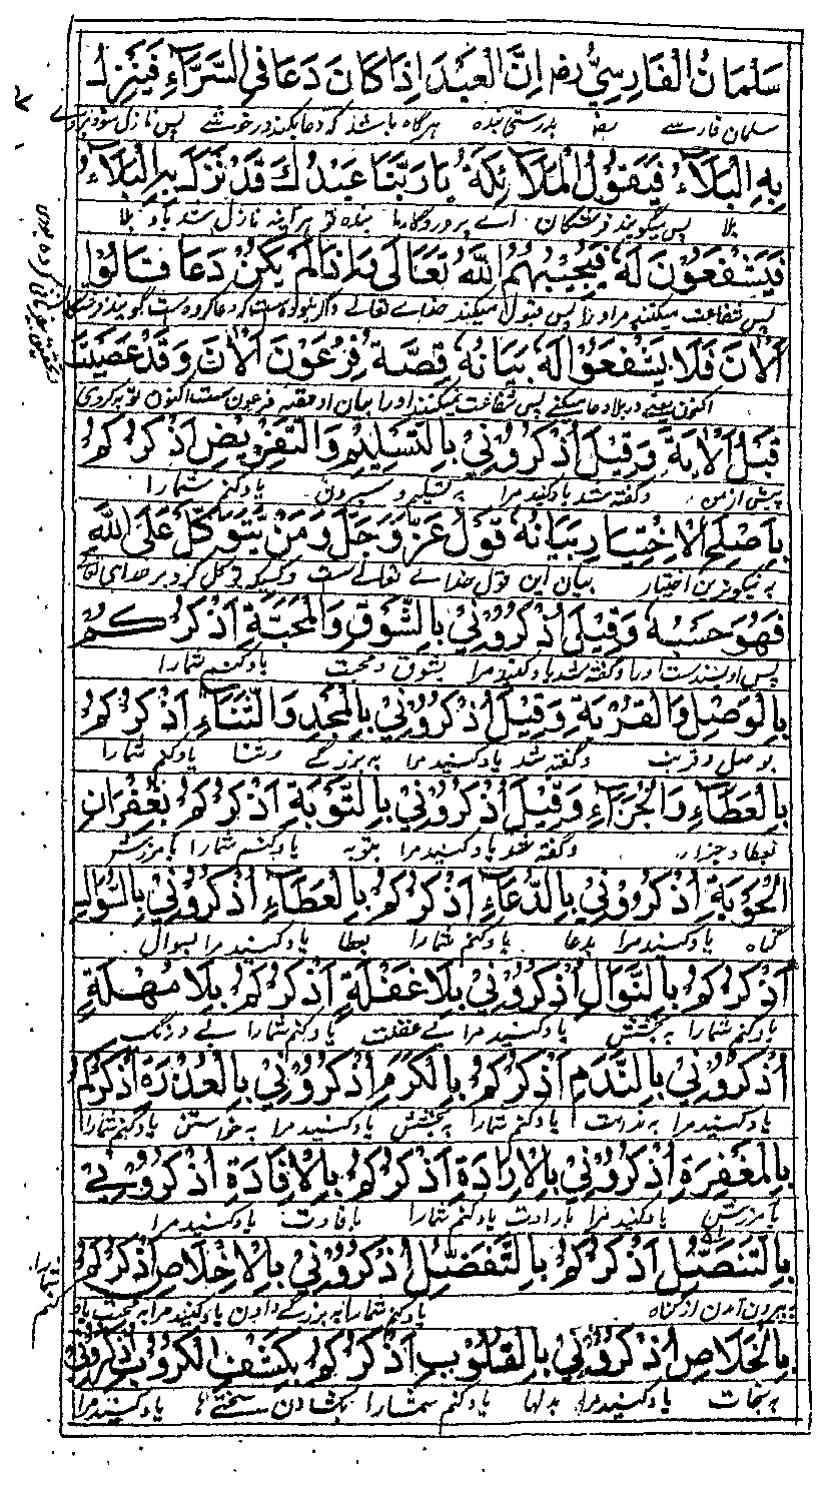 سَلْمَانُ الْفَارِسِيُّ رض اِنَّ الْعَبْدَ اِذَا كَانَ دَعَا فِي السَّرَّاءِ فَيَنْزِلُ
سلمان فارسے بدرستی بنده هرگاه باشد که دعا بکند در خوشے پس نازل شود
بِهِ الْبَلَاءُ فَيَقُوْلُ الْمَلَائِكَةُ يَا رَبَّنَا عَبْدُكَ قَدْ نَزَلَ بِهِ الْبَلَاءُ
بلا پس میگویند فرشتگان اے پروردگار ما بنده تو هر آینه نازل شد باو بلا
فَيَشْفَعُوْنَ لَهٗ فَيُجِيْبُهُمُ اللّٰهُ تَعَالٰى وَاِذَا لَمْ يَكُنْ دَعَا قَالُوْا
پس شفاعت میکنند مر او را پس قبول میکند خداے تعالے و اگر نبوده است که دعا کرده است گویند فرشتگان
اَلْاٰنَ فَلَا يَشْفَعُوْا لَهٗ بَيَانُهٗ قِصَّةُ فِرْعَوْنَ اَلْاٰنَ وَقَدْ عَصَيْتَ
اکنون یعنے در بلا دعا میکنے پس شفاعت نمیکنند او را بیان او قصه فرعون ست اکنون توبه کردی
قَبْلُ اَلْاٰيَةَ وَقِيْلَ اُذْكُرُوْنِيْ بِالتَّسْلِيْمِ وَالتَّفْوِيْضِ اَذْكُرْكُمْ
پیش از من وگفته شد یاد کنید مرا به تسلیم و سپردن یاد کنم شما را
بِاَصْلَحِ الْاِخْتِيَارِ بَيَانُهٗ قَوْلُ عَزَّ وَجَلَّ وَمَنْ يَّتَوَكَّلْ عَلَى اللّٰهِ
به نیکوترین اختیار بیان این قول خداے تعالے ست و کسیکه توکل کرد بر خداے تعالے
فَهُوَ حَسْبُهٗ وَقِيْلَ اُذْكُرُوْنِيْ بِالشَّوْقِ وَالْمَحَبَّةِ اَذْكُرْكُمْ
پس او بسندست او را وگفته شد یاد کنید مرا بشوق و محبت یاد کنم شما را
بِالْوَصْلِ وَالْقُرْبَةِ وَقِيْلَ اُذْكُرُوْنِيْ بِالْمَجْدِ وَالثَّنَاءِ اَذْكُرْكُمْ
بوصل و قربت وگفته شد یاد کنید مرا به بزرگے و ثنا یاد کنم شما را
بِالْعَطَاءِ وَالْجَزَاءِ وَقِيْلَ اُذْكُرُوْنِيْ بِالتَّوْبَةِ اَذْكُرْكُمْ بِغُفْرَانِ
بعطا و جزا وگفته شد یاد کنید مرا بتوبه یاد کنم شما را بآمرزش
الْحَوْبَةِ اُذْكُرُوْنِيْ بِالدُّعَاءِ اَذْكُرْكُمْ بِالْعَطَاءِ اُذْكُرُوْنِيْ بِالسُّوَالِ
گناه یاد کنید مرا بدعا یاد کنم شما را بعطا یاد کنید مرا بسوال
اَذْكُرْكُمْ بِالنَّوَالِ اُذْكُرُوْنِيْ بِلَا غَفْلَةٍ اَذْكُرْكُمْ بِلَا مُهْلَةٍ
یاد کنم شما را به بخشش یاد کنید مرا بے غفلت یاد کنم شما را بے درنگ
اُذْكُرُوْنِيْ بِالنَّدَمِ اَذْكُرْكُمْ بِالْكَرَمِ اُذْكُرُوْنِيْ بِالْعُذْرَةِ اَذْكُرْكُمْ
یاد کنید مرا به ندامت یاد کنم شما را به بخشش یاد کنید مرا به عذر خواستن یاد کنم شما را
بِالْمَغْفِرَةِ اُذْكُرُوْنِيْ بِالْاِرَادَةِ اَذْكُرْكُمْ بِالْاِفَادَةِ اُذْكُرُوْنِيْ
بآمرزش یاد کنید مرا بارادت یاد کنم شما را بافادت یاد کنید مرا
بِالتَّنَصُّلِ اَذْكُرْكُمْ بِالتَّفَضُّلِ اُذْكُرُوْنِيْ بِالْاِخْلَاصِ اَذْكُرْكُمْ
به بیرون آمدن از گناه یاد کنم شما را به بزرگے دادن یاد کنید مرا به محبت یاد
کنم شما را
بِالْخَلَاصِ اُذْكُرُوْنِيْ بِالْقُلُوْبِ اَذْكُرْكُمْ بِكَشْفِ الْكُرُوْبِ اُذْكُرُوْنِيْ
به نجات یاد کنید مرا بدلها یاد کنم شما را بکشادن سختے ها یاد کنید مرا